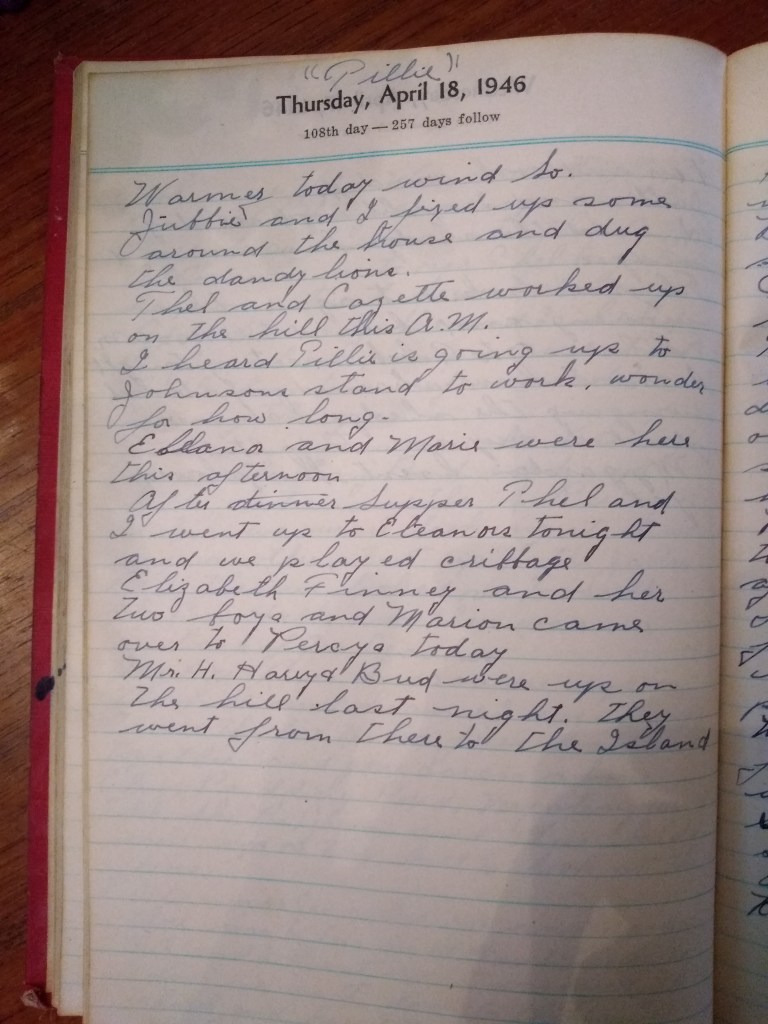 "Pillie"
Thursday, April 18, 1946
108th day — 257 days follow
Warmer today wind So.
Jubbie and I fixed up some
around the house and dug
the dandy lions.
Thel and Cozette worked up
on the hill this A.M.
I heard Pillie is going up to
Johnsons stand to work, wonder
for how long.
and Marie were here
this afternoon
After dinner Supper Phel and
I went up to Eleanors tonight
and we played cribbage
Elizabeth Finney and her
two boys and Marion came
over to Percys today
Mr. H. Harry & Bud were up on
the hill last night. They
went from there to the Island